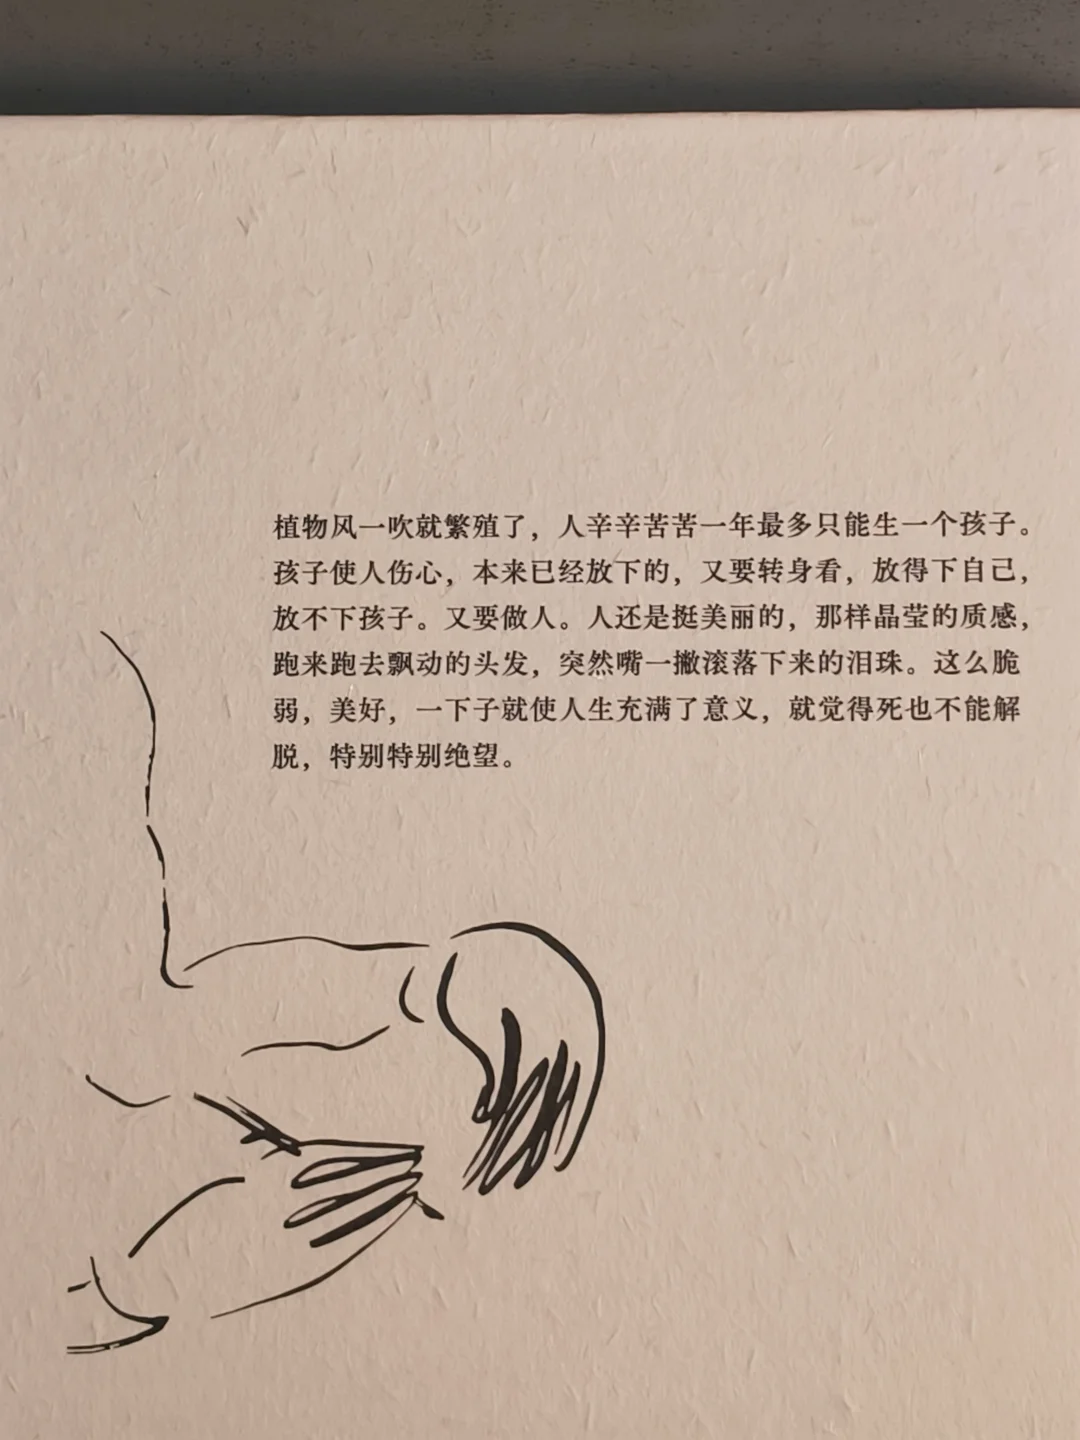 植物风一吹就繁殖了，人辛辛苦苦一年最多只能生一个孩子。
孩子使人伤心，本来已经放下的，又要转身看，放得下自己，
放不下孩子。又要做人。人还是挺美丽的，那样晶莹的质感，
跑来跑去飘动的头发，突然嘴一撇滚落下来的泪珠。这么脆
弱，美好，一下子就使人生充满了意义，就觉得死也不能解
脱，特别特别绝望。